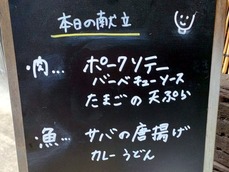 本日の献立
肉… ポークソテー
バーベキューソース
たまごの天ぷら
魚… サバの唐揚げ
カレーうどん